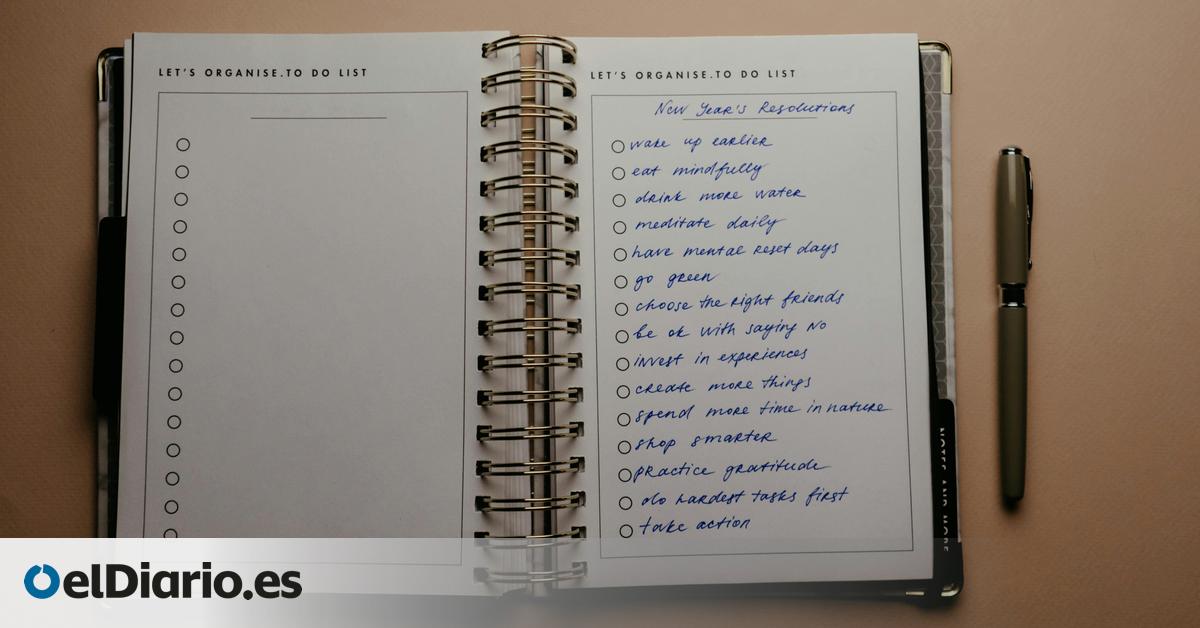 LET'S ORGANISE.TO DO LIST
LET'S ORGANISE.TO DO LIST
New Year's Resolutions
wake up earlier
eat mindfully
drink more water
meditate daily
have mental reset days
go green
choose the right friends
be ok with saying No
invest in experiences
create more things
spend more time in nature
shop smarter
practice gratitude
do hardest tasks first
take action
NOTES AND MORE
elDiario.es